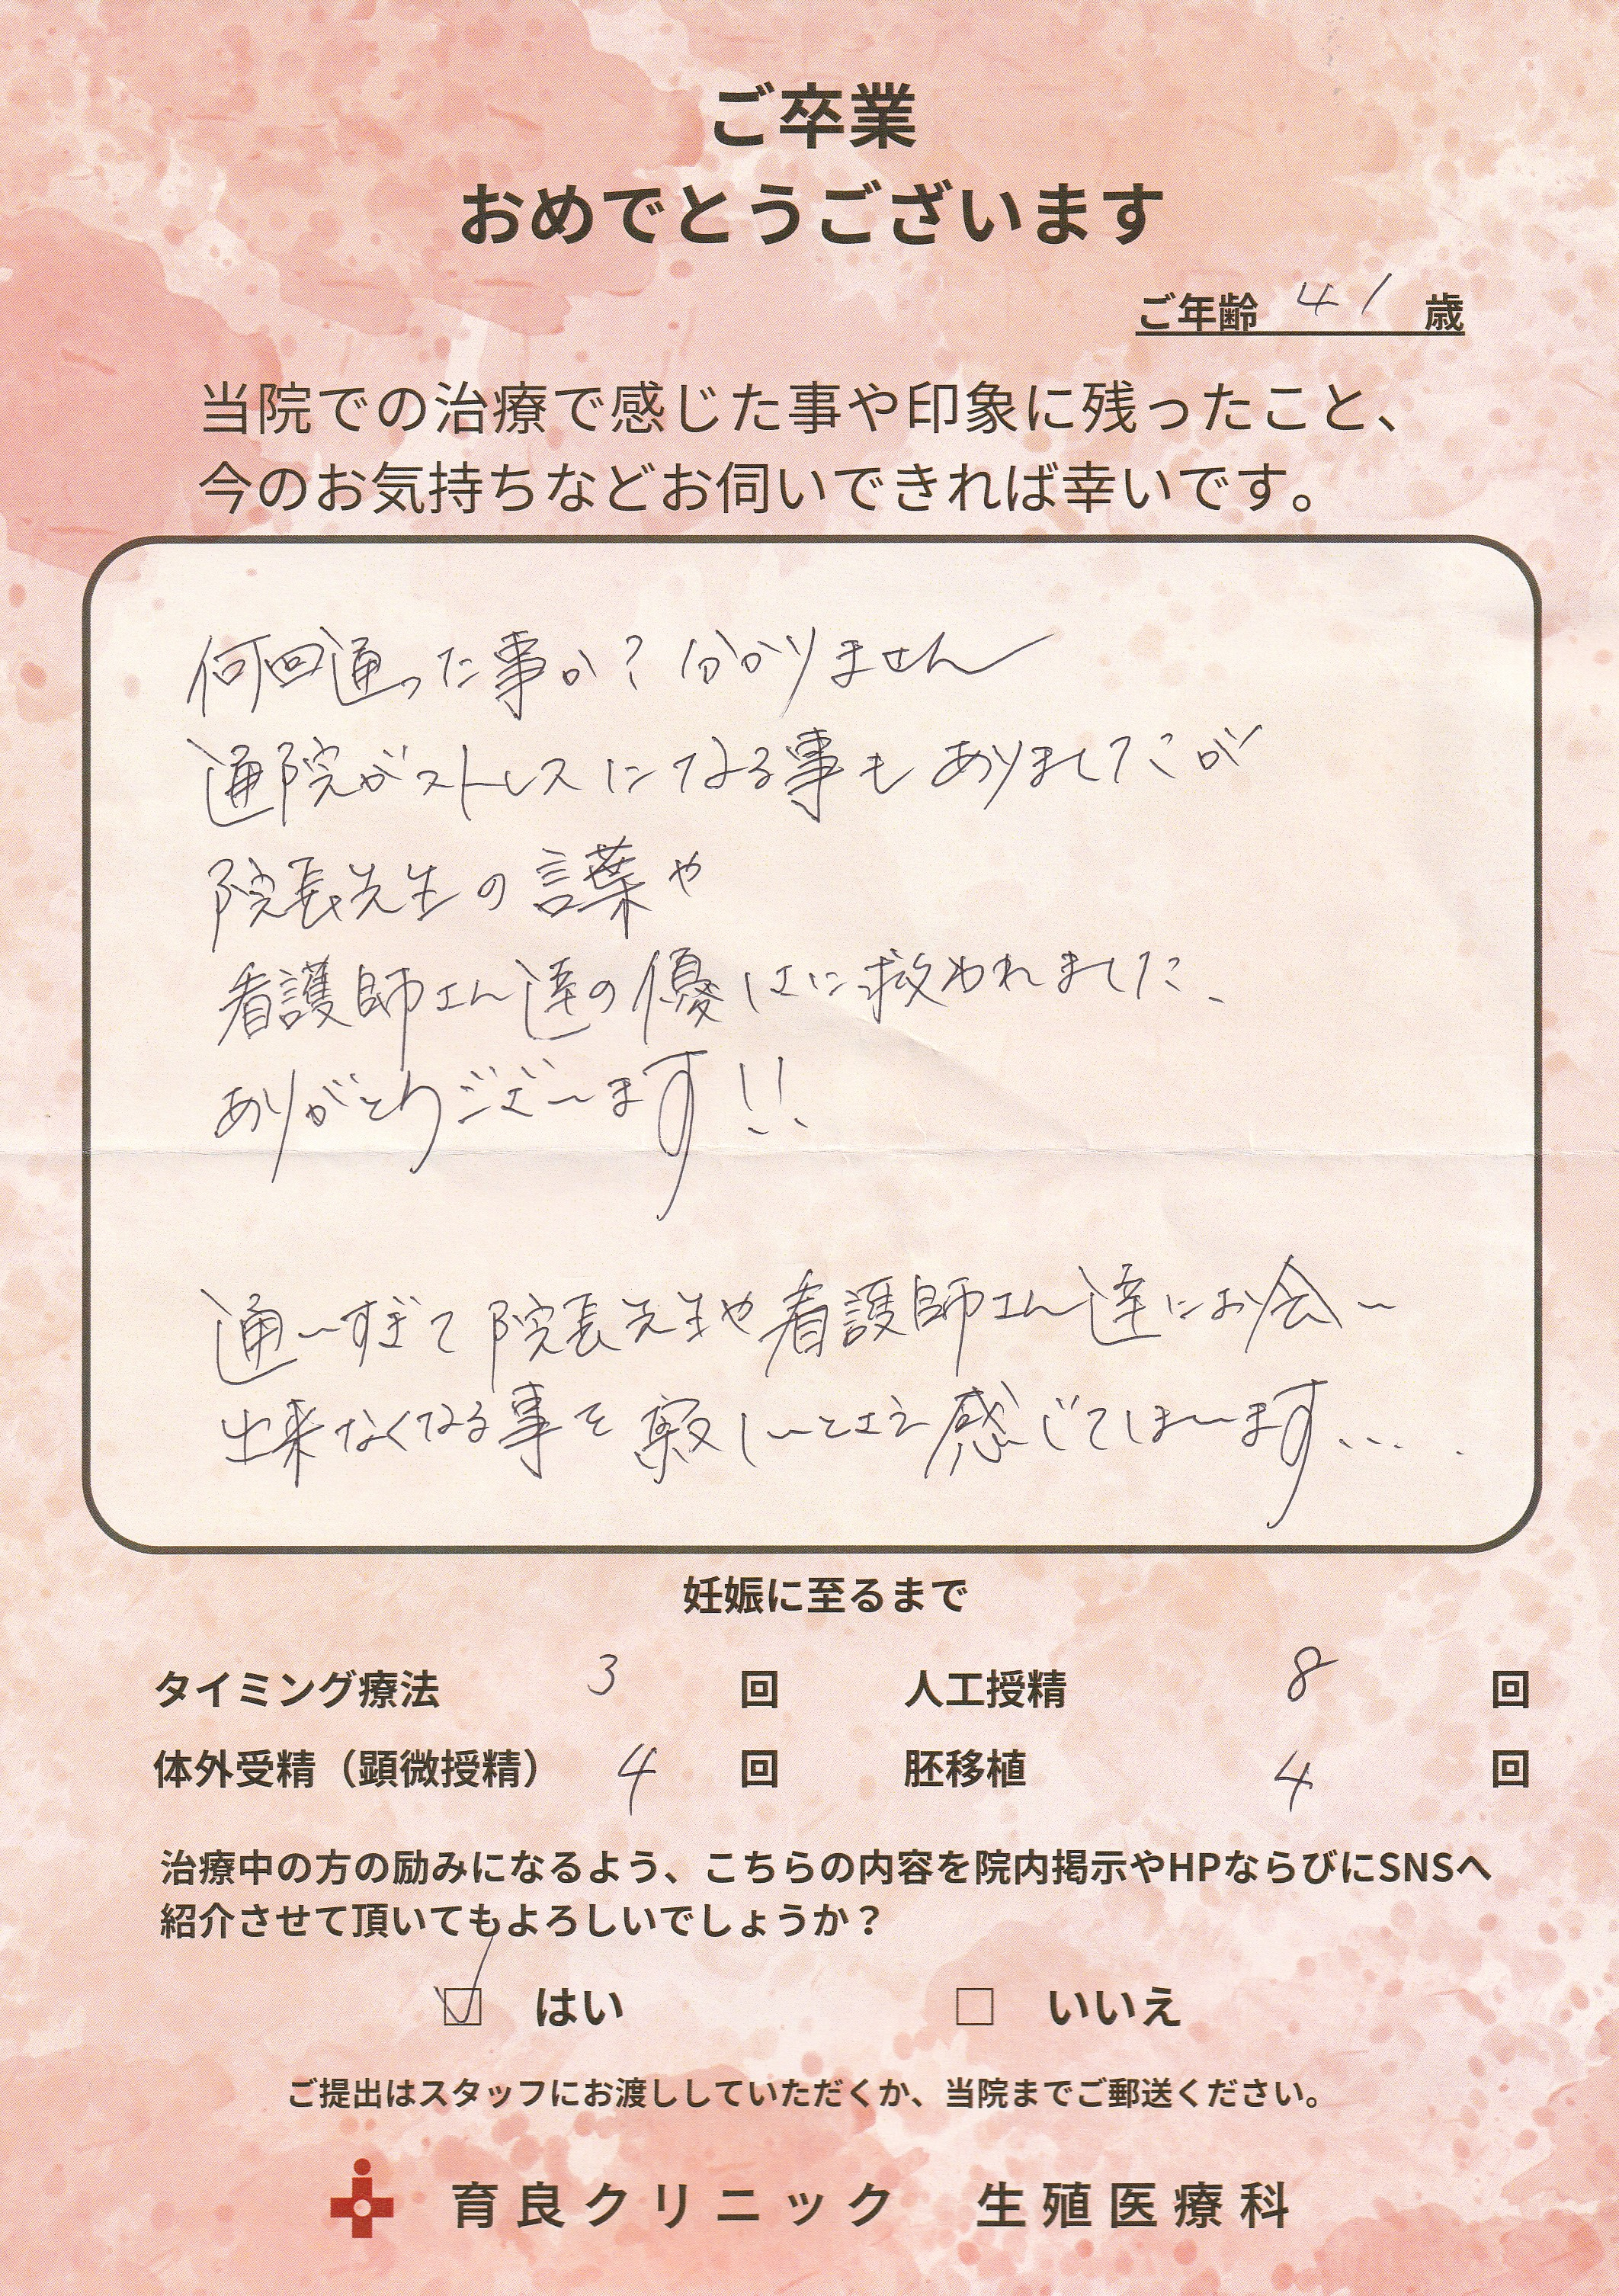 ご卒業
おめでとうございます
ご年齢 41 歳
当院での治療で感じた事や印象に残ったこと、
今のお気持ちなどお伺いできれば幸いです。
何回通った事か？分かりません
通院がストレスになる事もありましたが
院長先生の言葉や
看護師さん達の優しさに救われました、
ありがとうございます!!
通いすぎて院長先生や看護師さん達にお会い
出来なくなる事を寂しいとさえ感じてしまいます....
妊娠に至るまで
タイミング療法 3 回 人工授精 8 回
体外受精（顕微授精） 4 回 胚移植 4 回
治療中の方の励みになるよう、こちらの内容を院内掲示やHPならびにSNSへ
紹介させて頂いてもよろしいでしょうか？
☑ はい □ いいえ
ご提出はスタッフにお渡ししていただくか、当院までご郵送ください。
育良クリニック 生殖医療科